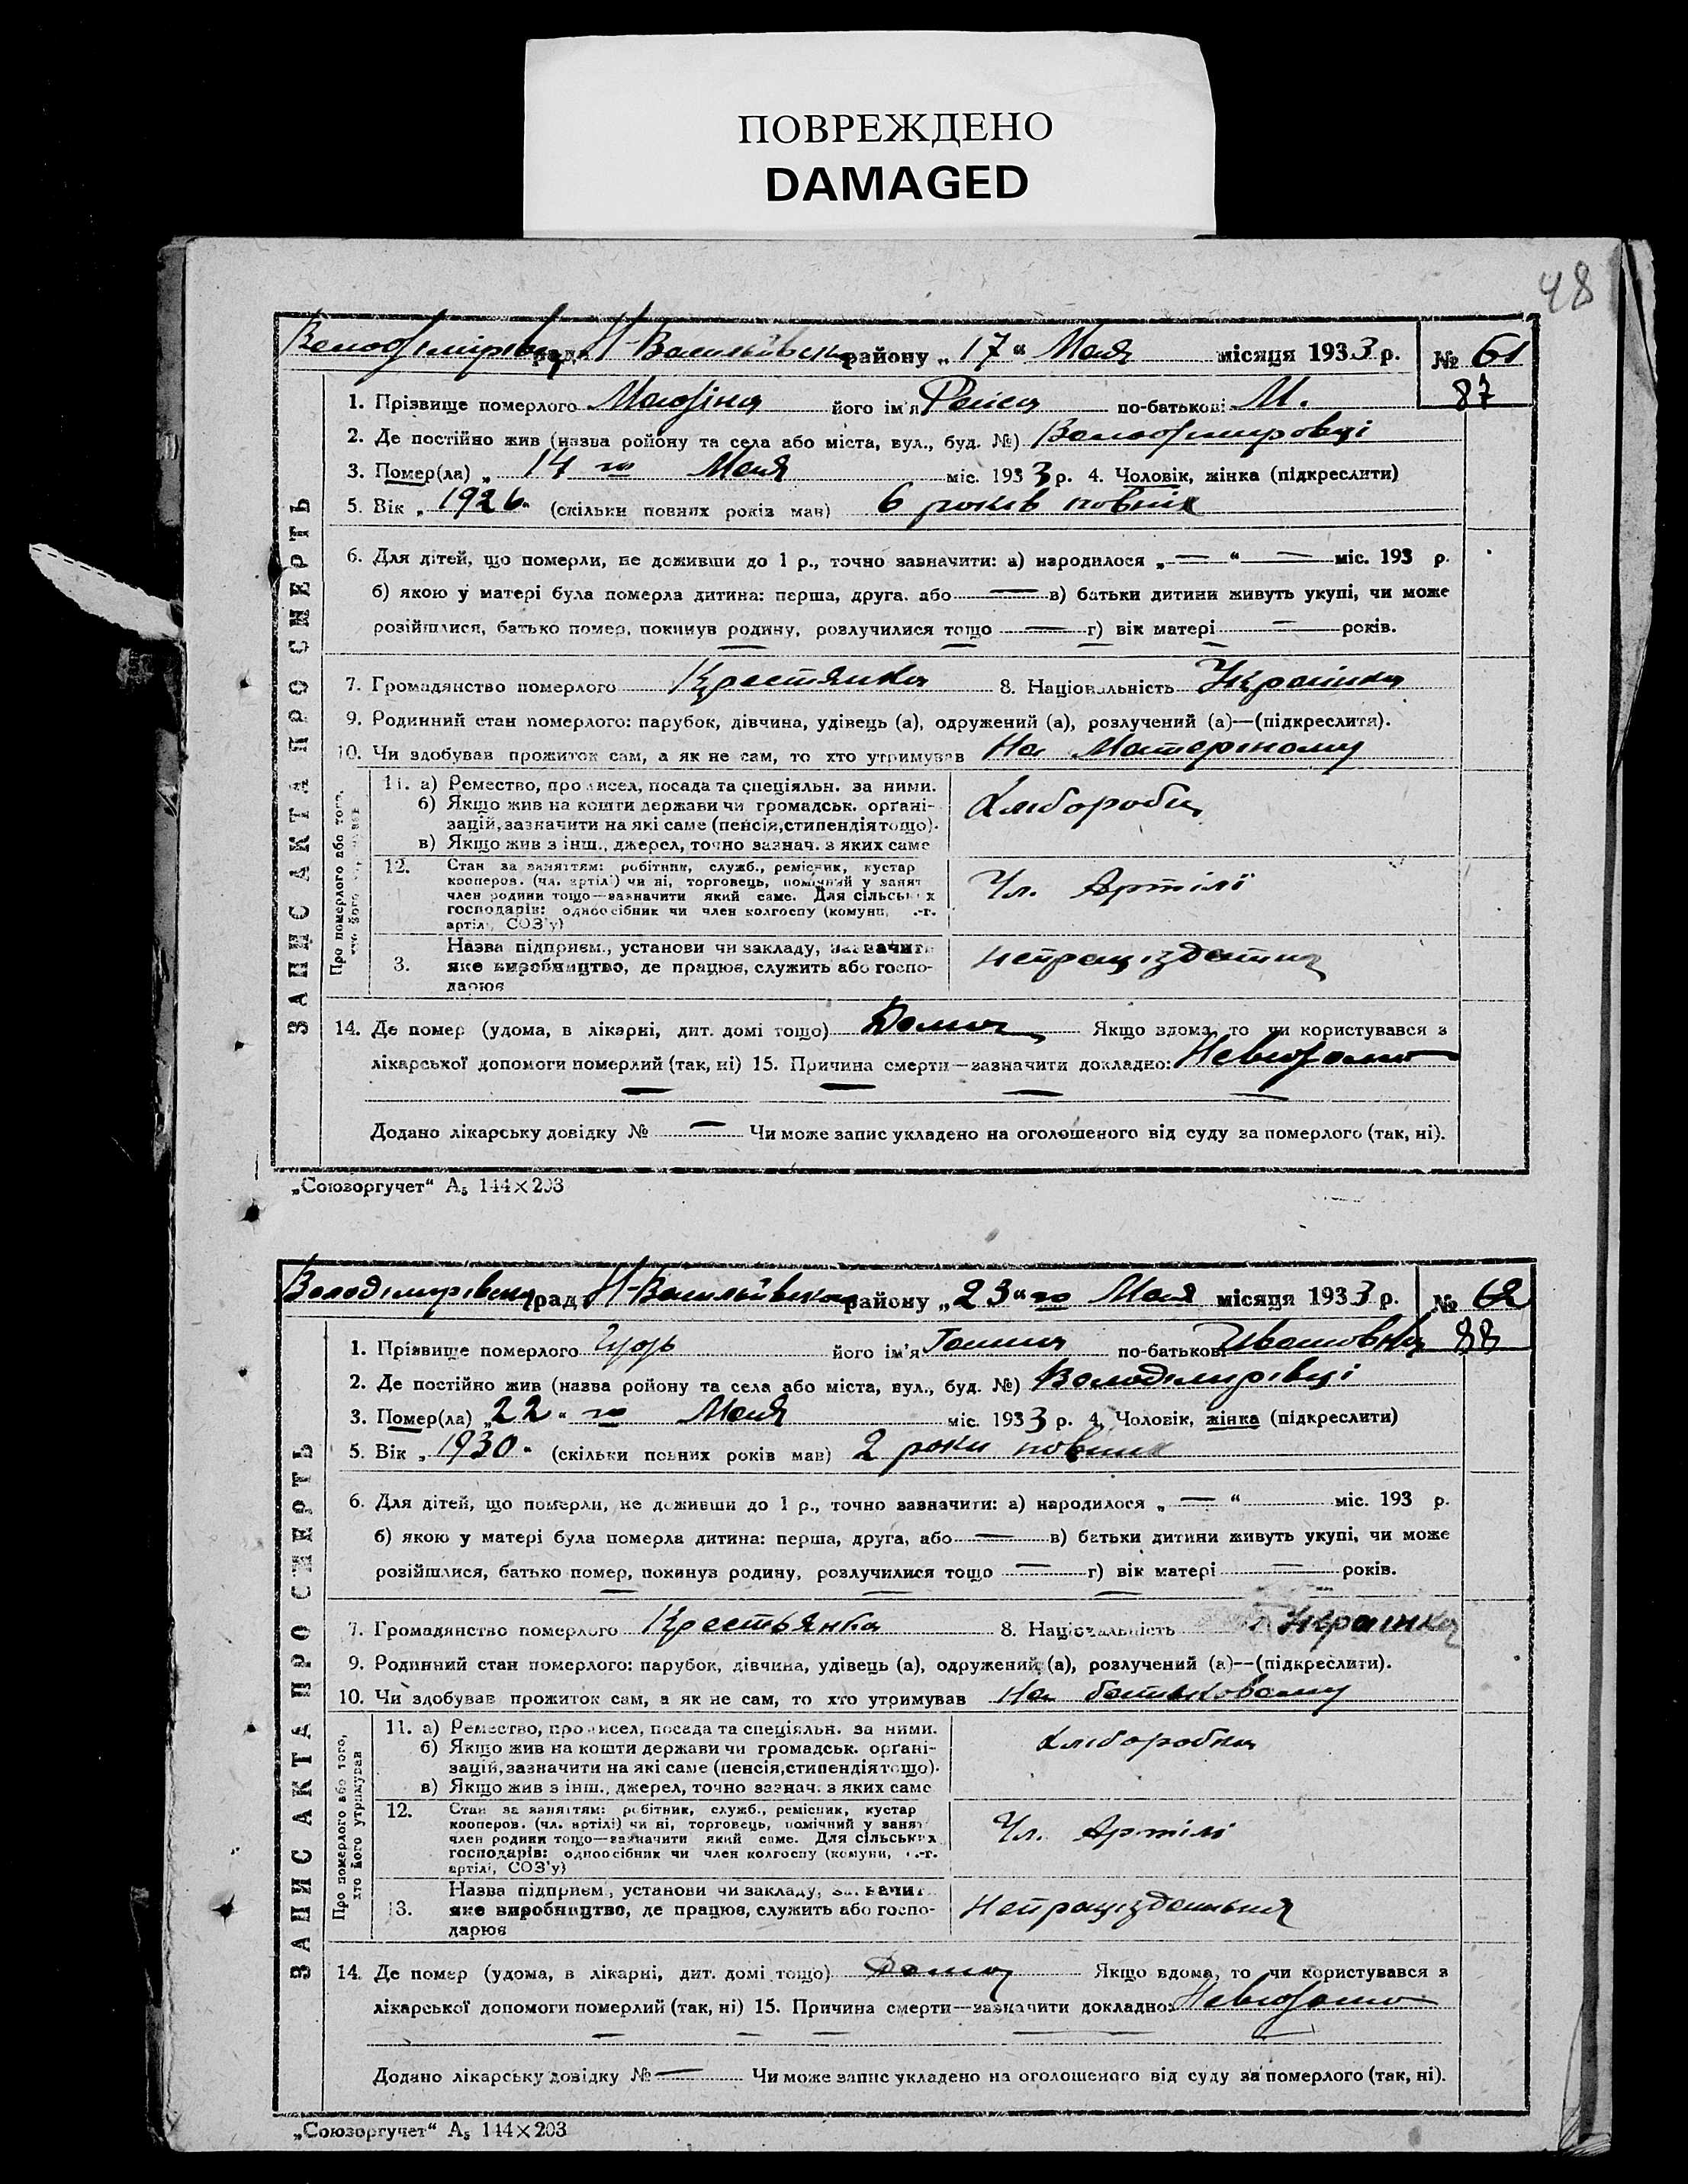 ПОВРЕЖДЕНО
DAMAGED
48
район у „17“ Мая місяця 1933 р. № 61
87
1. Прізвище померлого його ім'я Раїса по-батькові М.
2. Де постійно жив (назва ройону та села або міста, вул., буд. №) Володимировці
3. Помер(ла) „ 14 го Мая міс. 1933 р. 4. Чоловік, жінка (підкреслити)
5. Вік „ 1926 “ (скільки повних років мав) 6 років повних
6. Для дітей, що померли, не доживши до 1 р., точно зазначити: а) народилося „— “ — міс. 193 р.
б) якою у матері була померла дитина: перша, друга. або — в) батьки дитини живуть укупі, чи може
розійшлися, батько помер, покинув родину, розлучилися тощо — г) вік матері — років.
7. Громадянство померлого Крестянка 8. Національність Українка
9. Родинний стан померлого: парубок, дівчина, удівець (а), одружений (а), розлучений (а)—(підкреслити).
10. Чи здобував прожиток сам, а як не сам, то хто утримував На Материному
ЗАПИС АКТА ПРО СМЕРТЬ
Про померлого або того,
11. а) Ремество, промисел, посада та спеціяльн. за ними.
б) Якщо жив на кошти держави чи громадськ. орґані-
зацій, зазначити на які саме (пенсія, стипендія тощо).
в) Якщо жив з інш., джерел, точно зазнач. з яких саме
Хлібороби
12. Стан за заняттям: робітник, служб., ремісник, кустар
кооперов. (чл. артілі) чи ні, торговець, помічний у занят
член родини тощо—зазначити який саме. Для сільських
господарів: одноосібник чи член колгоспу (комуни, .-г.
артілі, СОЗ'у)
Чл. Артілі
3. Назва підприєм., установи чи закладу, зазначити
яке виробництво, де працює, служить або госпо-
дарює
14. Де помер (удома, в лікарні, дит. домі тощо) Дома Якщо вдома, то чи користувався з
лікарської допомоги померлий (так, ні) 15. Причина смерти—зазначити докладно: Невідомо
Додано лікарську довідку № — Чи може запис укладено на оголошеного від суду за померлого (так, ні).
„Союзоргучет“ А₅ 144×203
рад району „23“ го Мая місяця 1933 р. № 62
88
1. Прізвище померлого його ім'я Ганна по-батькові Івановна
2. Де постійно жив (назва ройону та села або міста, вул., буд. №) Володимірівці
3. Помер(ла) „22“ го Мая міс. 1933 р. 4. Чоловік, жінка (підкреслити)
5. Вік „ 1930 “ (скільки повних років мав) 2 роки повних
6. Для дітей, що померли, не доживши до 1 р., точно зазначити: а) народилося „ — “ міс. 193 р.
б) якою у матері була померла дитина: перша, друга, або — в) батьки дитини живуть укупі, чи може
розійшлися, батько помер, покинув родину, розлучилися тощо — г) вік матері — років.
7. Громадянство померлого Крестьянка 8. Національність Українка
9. Родинний стан померлого: парубок, дівчина, удівець (а), одружений (а), розлучений (а)—(підкреслити).
10. Чи здобував прожиток сам, а як не сам, то хто утримував На батьковому
ЗАПИС АКТА ПРО СМЕРТЬ
Про померлого або того,
хто його утримував
11. а) Ремество, промисел, посада та спеціяльн. за ними.
б) Якщо жив на кошти держави чи громадськ. орґані-
зацій, зазначити на які саме (пенсія, стипендія тощо).
в) Якщо жив з інш., джерел, точно зазнач. з яких саме
12. Стан за заняттям: робітник, служб., ремісник, кустар
кооперов. (чл. артілі) чи ні, торговець, помічний у занят
член родини тощо—зазначити який саме. Для сільських
господарів: одноосібник чи член колгоспу (комуни, .-г.
артілі, СОЗ'у)
Чл. Артілі
13. Назва підприєм., установи чи закладу, зазначит
яке виробництво, де працює, служить або госпо-
дарює
14. Де помер (удома, в лікарні, дит. домі тощо) Дома Якщо вдома, то чи користувався з
лікарської допомоги померлий (так, ні) 15. Причина смерти—зазначити докладно: Невідомо
Додано лікарську довідку № — Чи може запис укладено на оголошеного від суду за померлого (так, ні).
„Союзоргучет“ А₅ 144×203